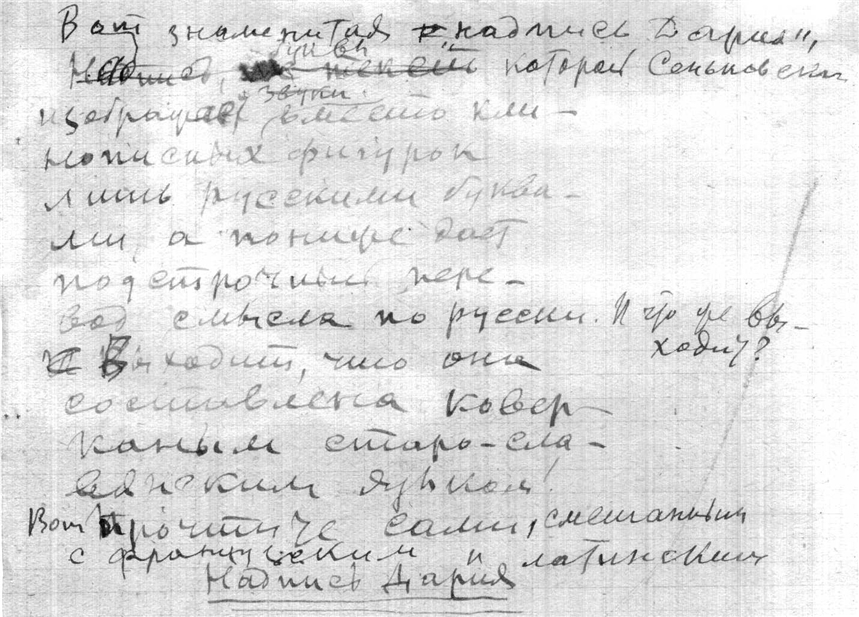 Вот знаменитая "надпись Дария",
буквы
Надпись, текст которой Сеньковски
звуки
изображает вместо кли-
нописных фигурок
лишь русскими буква-
ми, а пониже дает
подстрочный пере-
вод смысла по русски. И что же вы-
ходит?
Выходит, что она
составлена ковер-
каным старо-сла-
вянским языком!
Вот прочтите сами, смешанным
с французским и латинским
Надпись Дария